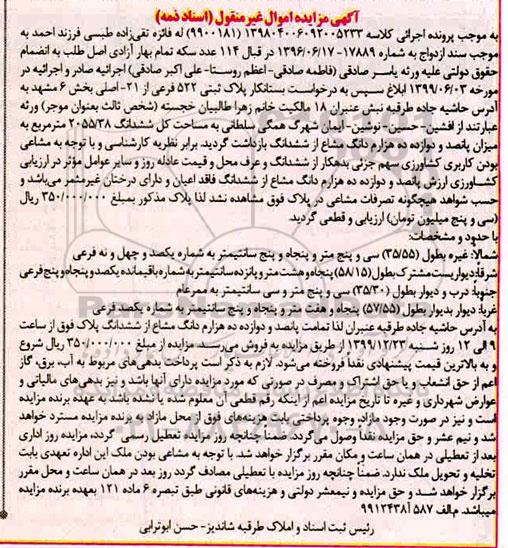 آگهی مزایده اموال غیرمنقول (اسناد ذمه)
به موجب پرونده اجرائی کلاسه ۱۳۹۸۰۴۰۰۶۰۹۲۰۰۵۲۳۳ (۹۹۰۰۱۸۱) له فائزه تقی‌زاده طبسی فرزند احمد به
موجب سند ازدواج به شماره ۱۷۸۸۹-۱۳۹۶/۰۶/۱۷ در قبال ۱۱۴ عدد سکه تمام بهار آزادی اصل طلب به انضمام
حقوق دولتی علیه ورثه یاسر صادقی (فاطمه صادقی-اعظم روستا-علی اکبر صادقی) اجرائیه صادر و اجرائیه در
مورخه ۱۳۹۹/۰۶/۰۳ ابلاغ سپس به درخواست بستانکار پلاک ثبتی ۵۲۲ فرعی از ۲۱-اصلی بخش ۶ مشهد به
آدرس حاشیه جاده طرقبه نبش عنبران ۱۸ مالکیت خانم زهرا طالبیان خجسته (شخص ثالث بعنوان موجر) ورثه
عبارتند از افشین-حسین-نوشین-ایمان شهرت همگی سلطانی به مساحت کل ششدانگ ۲۰۵۵/۳۸ مترمربع به
میزان پانصد و دوازده ده هزارم دانگ مشاع از ششدانگ بازداشت گردید. برابر نظریه کارشناسی و با توجه به مشاعی
بودن کاربری کشاورزی سهم جزئی بدهکار از ششدانگ و عرف محل و قیمت عادله روز و سایر عوامل مؤثر در ارزیابی
کشاورزی ارزش پانصد و دوازده ده هزارم دانگ مشاع از ششدانگ فاقد اعیان و دارای درختان غیرمثمر می‌باشد و
حسب شواهد هیچگونه تصرفات مشاعی در پلاک فوق مشاهده نشد لذا پلاک مذکور بمبلغ ۳۵۰/۰۰۰/۰۰۰ ریال
(سی و پنج میلیون تومان) ارزیابی و قطعی گردید.
با حدود و مشخصات:
شمالا: غیره بطول (۳۵/۵۵) سی و پنج متر و پنجاه و پنج سانتیمتر به شماره یکصد و چهل و نه فرعی
شرقا: دیواریست مشترک بطول (۵۸/۱۵) پنجاه و هشت متر و پانزده سانتیمتر به شماره باقیمانده یکصد و پنجاه و پنج فرعی
جنوبا: درب و دیوار بطول (۳۵/۳۰) سی و پنج متر و سی سانتیمتر به ممرعام
غربا: دیوار بدیوار بطول (۵۷/۵۵) پنجاه و هفت متر و پنجاه و پنج سانتیمتر به شماره یکصد فرعی
به آدرس حاشیه جاده طرقبه عنبران لذا تمامت پانصد و دوازده ده هزارم دانگ مشاع از ششدانگ پلاک فوق از ساعت
۹ الی ۱۲ روز شنبه ۱۳۹۹/۱۲/۲۳ از طریق مزایده به فروش می‌رسد. مزایده از مبلغ ۳۵۰/۰۰۰/۰۰۰ ریال شروع
و به بالاترین قیمت پیشنهادی نقدا فروخته می‌شود. لازم به ذکر است پرداخت بدهی‌های مربوط به آب، برق، گاز
اعم از حق انشعاب و یا حق اشتراک و مصرف در صورتی که مورد مزایده دارای آنها باشد و نیز بدهی‌های مالیاتی و
عوارض شهرداری و غیره تا تاریخ مزایده اعم از اینکه رقم قطعی آن معلوم شده یا نشده باشد به عهده برنده مزایده
است و نیز در صورت وجود مازاد، وجوه پرداختی بابت هزینه‌های فوق از محل مازاد به برنده مزایده مسترد خواهد
شد و نیم عشر و حق مزایده نقدا وصول می‌گردد. ضمنا چنانچه روز مزایده تعطیل رسمی گردد، مزایده روز اداری
بعد از تعطیلی در همان ساعت و مکان مقرر برگزار خواهد شد. با توجه به مشاعی بودن ملک این اداره تعهدی بابت
تخلیه و تحویل ملک ندارد. ضمناً چنانچه روز مزایده با تعطیلی مصادف گردد روز بعد در همان ساعت و محل مقرر
برگزار خواهد شد و حق مزایده و نیمعشر دولتی و هزینه‌های قانونی طبق تبصره ۶ ماده ۱۲۱ بعهده برنده مزایده
میباشد. م.الف ۵۸۷ آ۹۹۱۲۴۳۸
رئیس ثبت اسناد و املاک طرقبه شاندیز- حسن ابوترابی